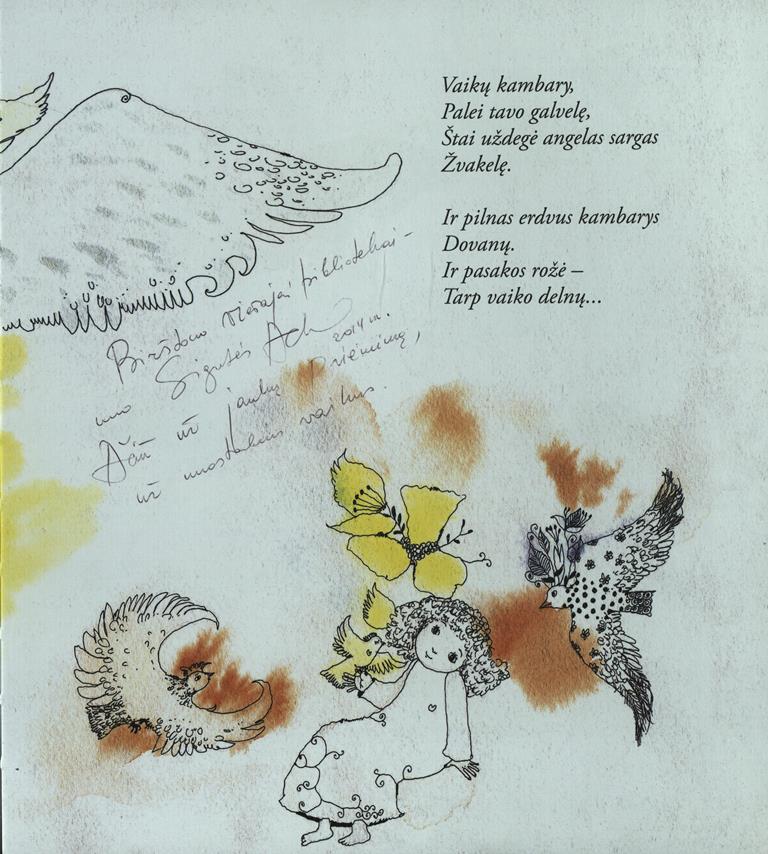 Vaikų kambary,
Palei tavo galvelę,
Štai uždegė angelas sargas
Žvakelę.
Ir pilnas erdvus kambarys
Dovanų.
Ir pasakos rožė –
Tarp vaiko delnų...
Birštono viešajai bibliotekai –
nuo Sigutės Ach 2014 m.
Ačiū už jaukų priėmimą,
už nuostabius vaikus.